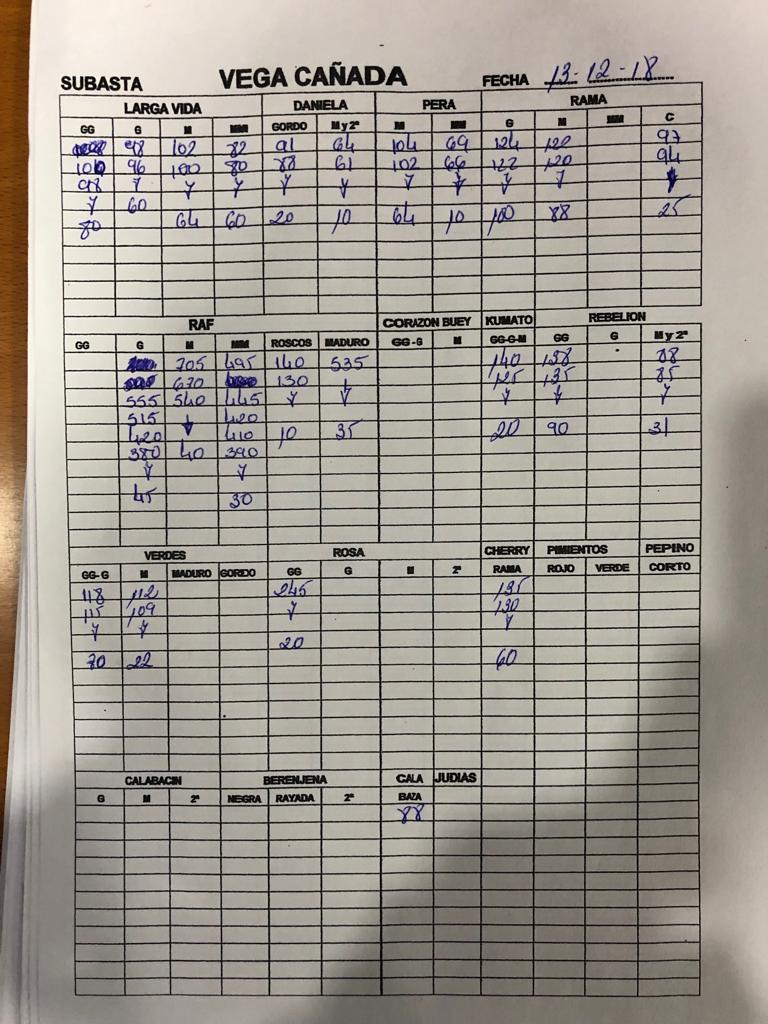 SUBASTA VEGA CAÑADA FECHA 13-12-18
LARGA VIDA DANIELA PERA RAMA
GG G M MM GORDO M y 2ª M MM G M MM C
98 102 82 91 64 104 69 124 120 97
100 96 100 80 88 61 102 66 122 120 94
98
60
80 64 60 20 10 64 10 100 88 25
RAF CORAZON BUEY KUMATO REBELION
GG G M MM ROSCOS MADURO GG-G M GG-G-M GG G M y 2ª
705 495 140 535 140 138 88
670 130 125 135 85
555 540 445
515 420
420 410 10 35 20 90 31
380 40 390
45 30
VERDES ROSA CHERRY PIMIENTOS PEPINO
GG-G M MADURO GORDO GG G M 2ª RAMA ROJO VERDE CORTO
118 112 245 135
115 109 130
20
70 22 60
CALABACIN BERENJENA CALA JUDIAS
G M 2ª NEGRA RAYADA 2ª BAZA
88